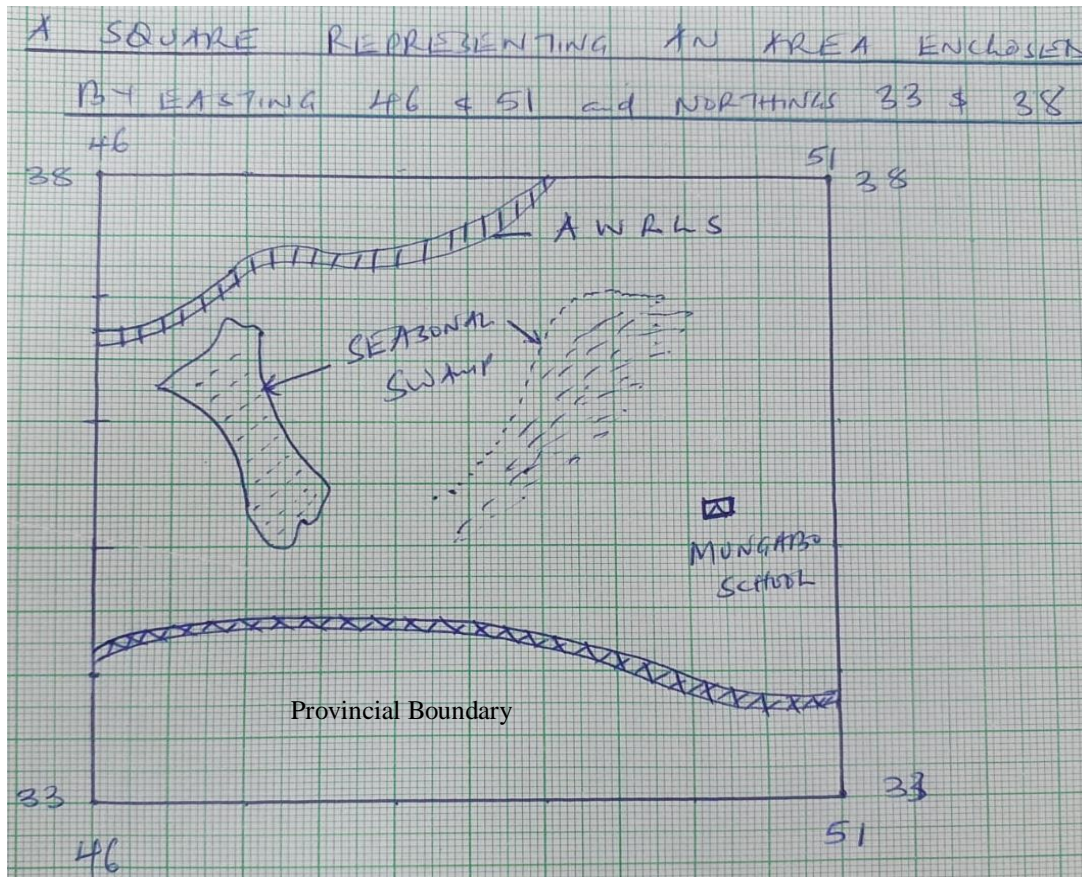 A SQUARE REPRESENTING AN AREA ENCLOSED
BY EASTING 46 & 51 and NORTHINGS 33 & 38
46
51
38
38
A W R L S
SEASONAL
SWAMP
MUNGABO
SCHOOL
Provincial Boundary
33
33
46
51